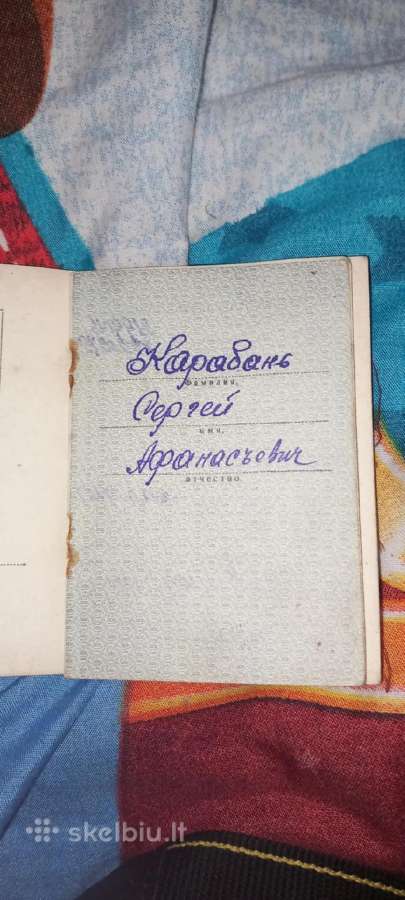 Карабань
фамилия,
Сергей
имя,
Афанасъевич
отчество.
skelbiu.lt